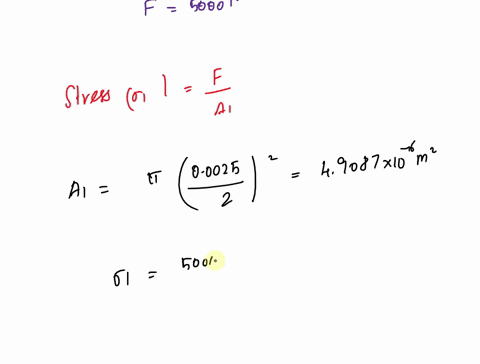 F = 5000
Stress (σ1) = F / A1
A1 = π (0.0025 / 2)² = 4.9087×10⁻⁶ m²
σ1 = 500